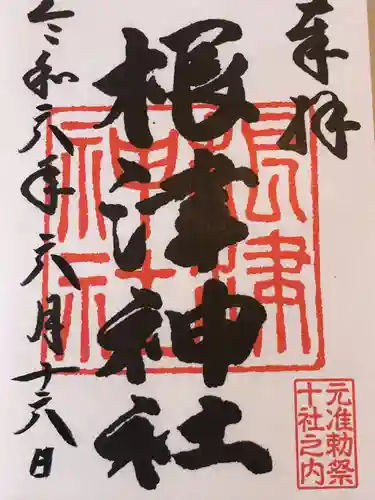 奉拝
根津神社
令和六年六月十六日
根津神社
元准勅祭
十社之内